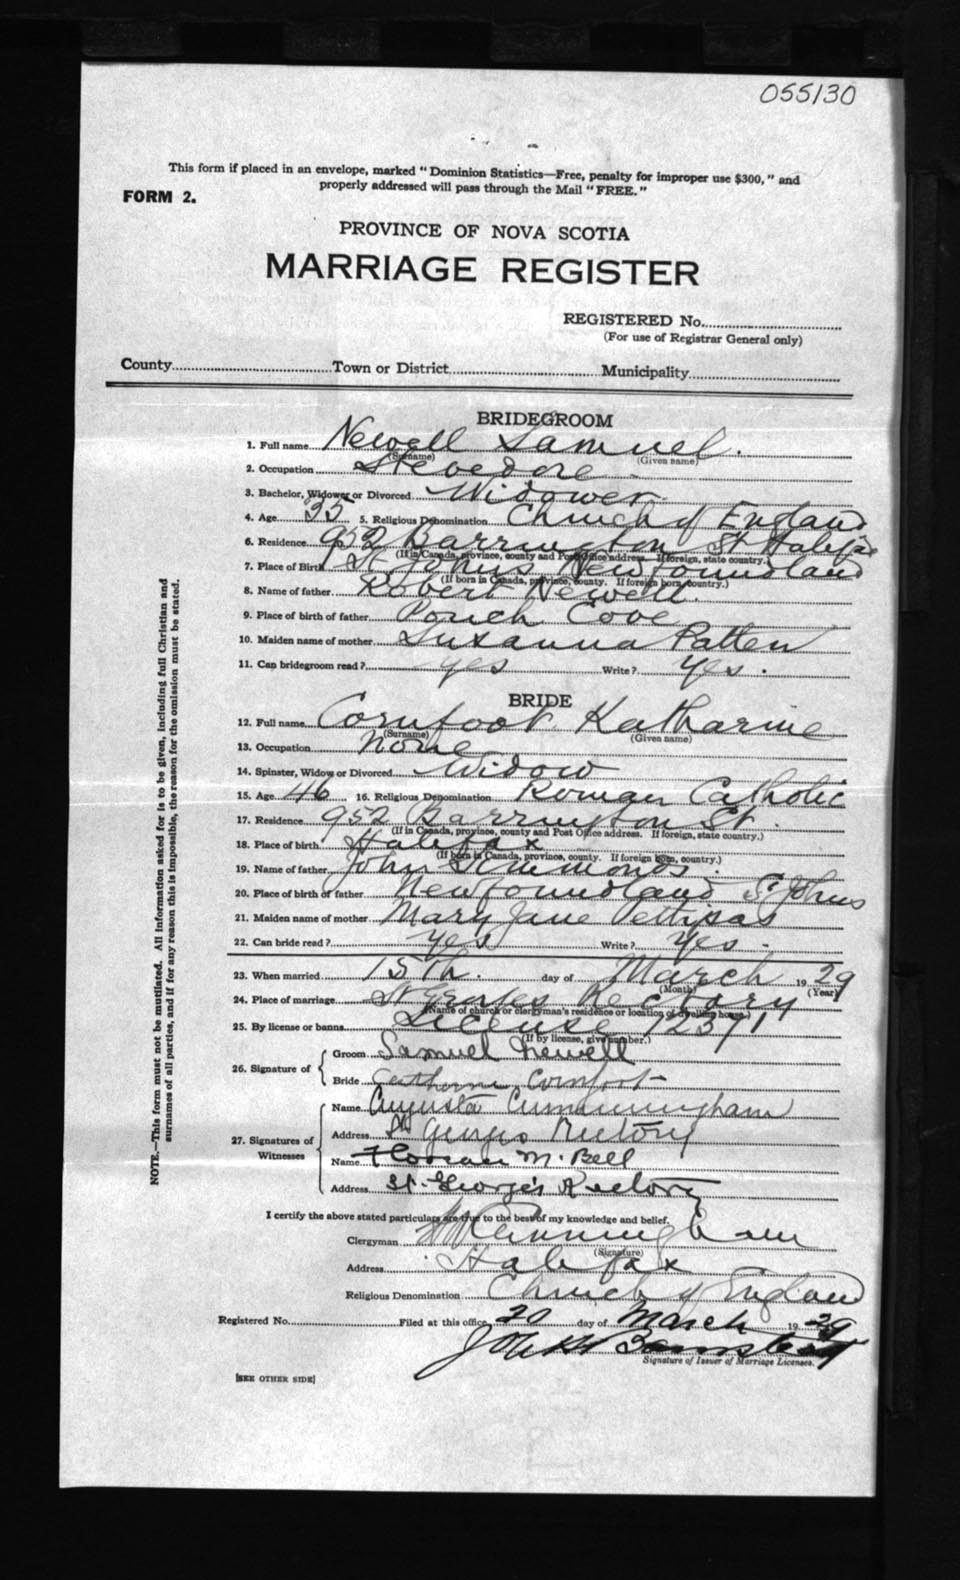 055130
This form if placed in an envelope, marked "Dominion Statistics—Free, penalty for improper use $300," and
properly addressed will pass through the Mail "FREE."
FORM 2.
PROVINCE OF NOVA SCOTIA
MARRIAGE REGISTER
REGISTERED No.
(For use of Registrar General only)
County Town or District Municipality
BRIDEGROOM
1. Full name Newell Samuel.
(Surname) (Given name)
2. Occupation Stevedore
3. Bachelor, Widower or Divorced Widower.
4. Age 35 5. Religious Denomination Church of England
6. Residence 952 Barrington St Halifax
(If in Canada, province, county and Post Office address. If foreign, state country.)
7. Place of Birth St Johns Newfoundland
(If born in Canada, province, county. If foreign born, country.)
8. Name of father Robert Newell.
9. Place of birth of father Pouch Cove
10. Maiden name of mother Susanna Patten
11. Can bridegroom read? yes Write? yes.
BRIDE
12. Full name Cornfoot Katharine
(Surname) (Given name)
13. Occupation none
14. Spinster, Widow or Divorced Widow
15. Age 46 16. Religious Denomination Roman Catholic
17. Residence 952 Barrington St.
(If in Canada, province, county and Post Office address. If foreign, state country.)
18. Place of birth Halifax
(If born in Canada, province, county. If foreign born, country.)
19. Name of father John Simmonds.
20. Place of birth of father Newfoundland St Johns
21. Maiden name of mother Mary Jane Pettipas
22. Can bride read? yes Write? yes.
23. When married 15th. day of March 1929
(Month) (Year)
24. Place of marriage St Georges Rectory
(Name of church or clergyman's residence or location of dwelling house.)
25. By license or banns License 12571
(If by license, give number.)
26. Signature of Groom Samuel Newell
Bride Catherine Cornfoot
27. Signatures of Witnesses Name Augusta Cunningham
Address St Georges Rectory
Name M. Bell
Address St. George's Rectory
I certify the above stated particulars are true to the best of my knowledge and belief.
Clergyman Cunningham
(Signature)
Address Halifax
Religious Denomination Church of England
Registered No. Filed at this office 20 day of March 1929
Signature of Issuer of Marriage Licenses.
[SEE OTHER SIDE]
NOTE.—This form must not be mutilated. All information asked for is to be given, including full Christian and
surnames of all parties, and if for any reason this is impossible, the reason for the omission must be stated.